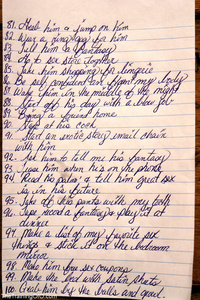 81. Grab him & jump on him
82. Wear a nightgap for him
83. Tell him a fantasy
84. Go to sex store together
85. Take him shopping for lingerie
86. Be self confident in front my body
87. Wake him in the middle of the night
88. Start off his day with a blow job
89. Bring a friend home
90. Stare at his cock
91. Start an erotic story email chain
with him
92. Ask him to tell me his fantasy
93. Tease him when he's on the phone
94. Read his palm & tell him great sex
is in his future
95. Take off his pants with my teeth
96. Tape record a fantasy & play it at
dinner
97. Make a list of my favorite sex
things & stick it on the bedroom
mirror
98. Make him sex coupons
99. Make the bed with satin sheets
100. Grab him by the balls and growl.